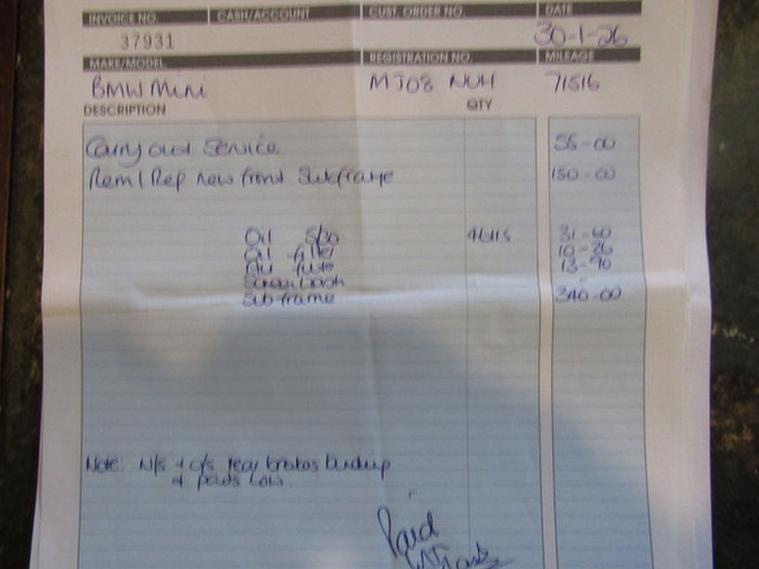 INVOICE NO. CASH/ACCOUNT CUST. ORDER NO. DATE
37931 30-1-26
MAKE/MODEL REGISTRATION NO. MILEAGE
BMW Mini MJ08 NUH 71516
DESCRIPTION QTY
Carry out Service 55-00
Rem / Rep new front Subframe 150-00
Oil 5/30 4 ltrs 31-60
Oil filter 10-26
Air filter 13-90
Screen wash -
Subframe 340-00
Note: N/S + O/S rear brakes binding
+ pads Low.
Paid